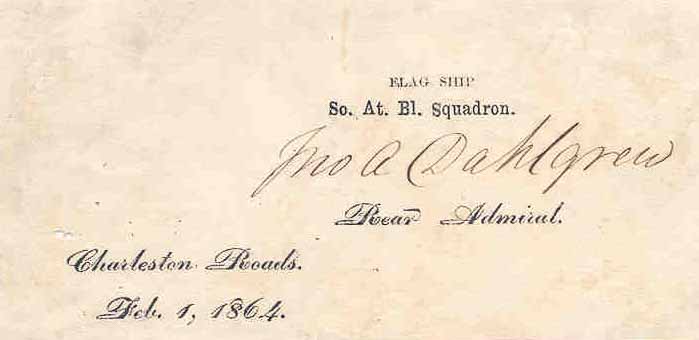 FLAG SHIP
So. At. Bl. Squadron.
Jno A Dahlgren
Rear Admiral.
Charleston Roads.
Feb. 1, 1864.